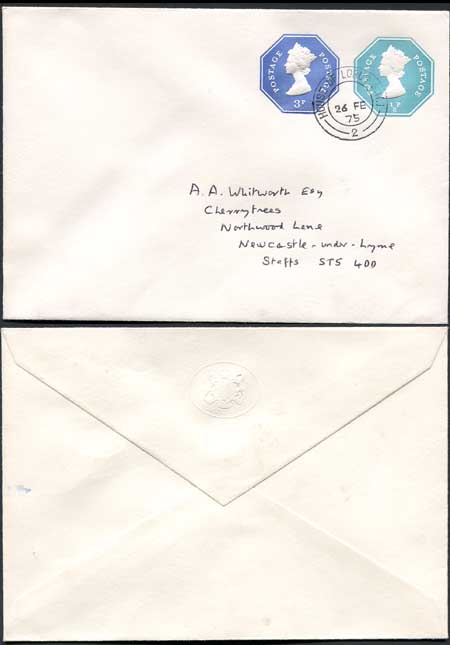 POSTAGE POSTAGE
3P
POSTAGE POSTAGE
½P
LORDS
26 FE
75
2
A. A. Whitworth Esq
Cherrytrees
Northwood Lane
Newcastle-under-Lyme
Staffs ST5 4DD